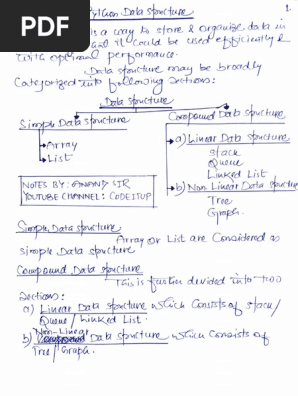 PDF
Python Data Structure
1
is a way to store & organize data in
and it could be used efficiently &
with optimal performance.
Data structure may be broadly
Categorized into following sections:
Data structure
Simple Data structure
Compound Data structure
Array
List
a) Linear Data structure
stack
Queue
Linked List
b) Non Linear Data structure
Tree
Graph.
NOTES BY: ANAND SIR
YOUTUBE CHANNEL: CODEITUP
Simple Data structure
Array or List are Considered as
simple Data structure
Compound Data structure
This is further divided into two
Sections:
a) Linear Data structure which Consists of stack/
Queue / Linked List.
Non-Linear
b) Data structure which Consists of
Tree / Graph.